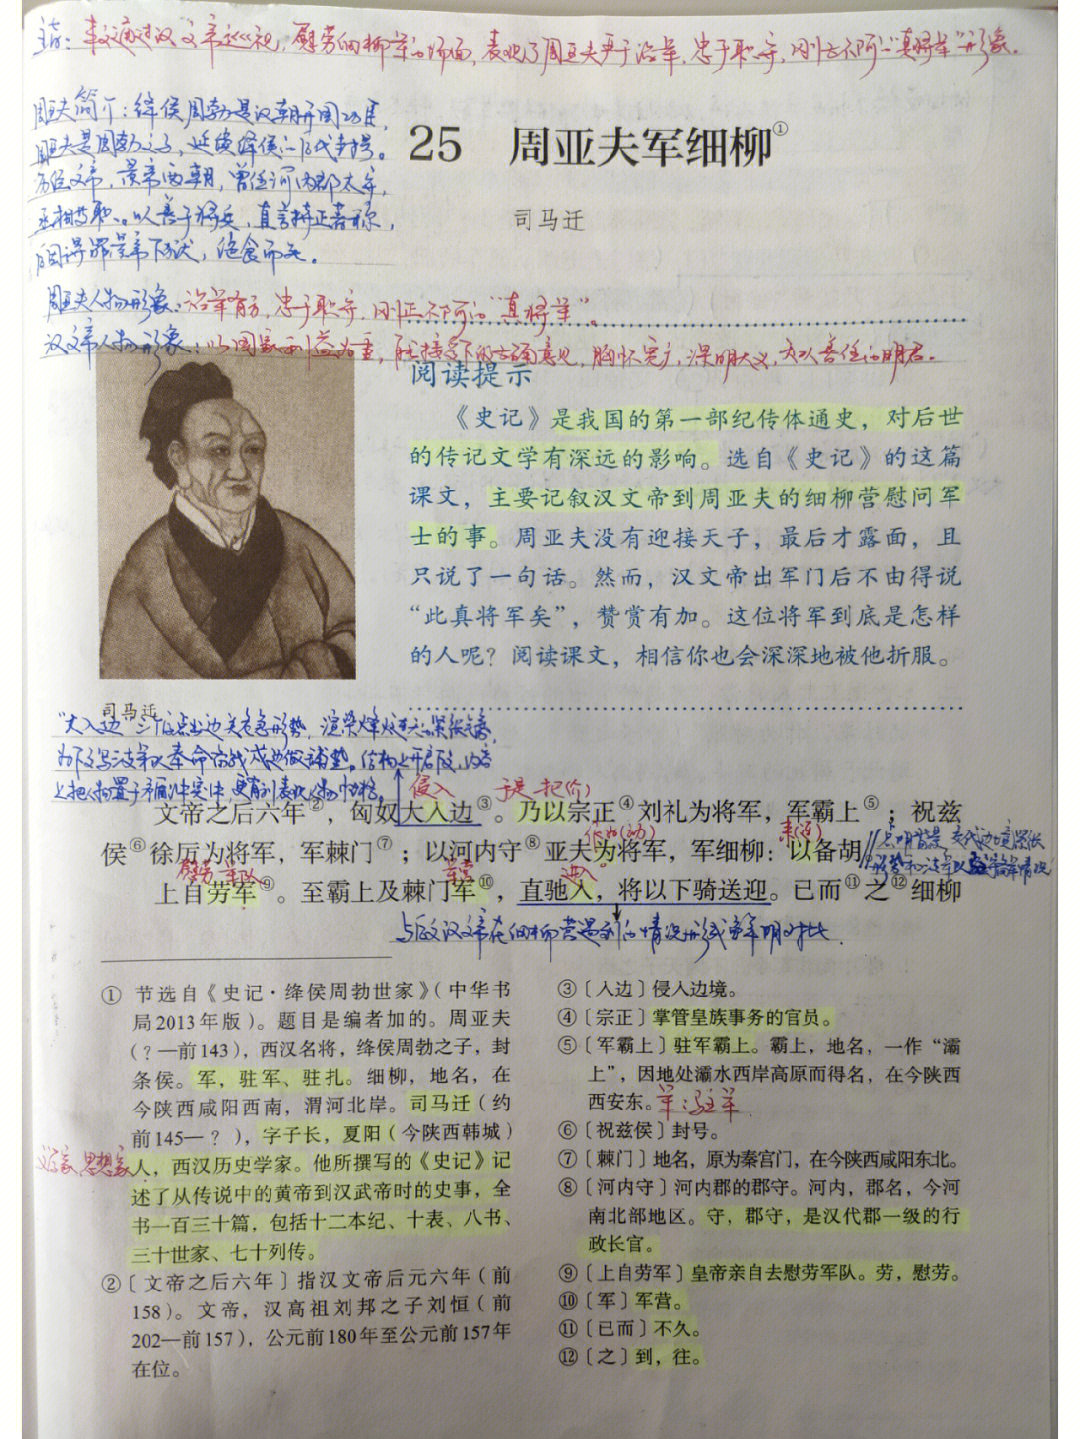 主旨：本文通过汉文帝巡视，慰劳细柳军的场面，表现了周亚夫严于治军，忠于职守，刚正不阿的“真将军”形象。
周亚夫简介：绛侯周勃是汉朝开国功臣，
周亚夫是周勃之子，延续绛侯的后代封号。
历任文帝，景帝两朝，曾任河内郡太守，
丞相等职。以善于将兵，直言持正著称，
后因得罪景帝下狱，绝食而死。
25 周亚夫军细柳①
司马迁
周亚夫人物形象：治军有方，忠于职守，刚正不阿的“真将军”。
汉文帝人物形象：以国家利益为重，胸怀宽广，深明大义，知人善任的明君。
阅读提示
《史记》是我国的第一部纪传体通史，对后世
的传记文学有深远的影响。选自《史记》的这篇
课文，主要记叙汉文帝到周亚夫的细柳营慰问军
士的事。周亚夫没有迎接天子，最后才露面，且
只说了一句话。然而，汉文帝出军门后不由得说
“此真将军矣”，赞赏有加。这位将军到底是怎样
的人呢？阅读课文，相信你也会深深地被他折服。
司马迁
“大入边”三字点出边关危急形势，渲染烽火连天的紧张气氛，
为下文写三支军队奉命备战戍边做铺垫。结构上开启下文，内容
上把人物置于矛盾冲突中，更有利表现人物性格。
侵入 于是 把（介）
文帝之后六年②，匈奴大入边③。乃以宗正④刘礼为将军，军霸上⑤；祝兹
作为（动） 来（连）
侯⑥徐厉为将军，军棘门⑦；以河内守⑧亚夫为将军，军细柳：以备胡。
点明背景，交代边境紧张
形势和三支军队
慰劳 军队 军营 进入
上自劳军⑨。至霸上及棘门军⑩，直驰入，将以下骑送迎。已而⑪之⑫细柳
与后文汉文帝在细柳营遇到的情况形成鲜明对比。
① 节选自《史记·绛侯周勃世家》（中华书
局2013年版）。题目是编者加的。周亚夫
（？—前143），西汉名将，绛侯周勃之子，封
条侯。军，驻军、驻扎。细柳，地名，在
今陕西咸阳西南，渭河北岸。司马迁（约
前145—？），字子长，夏阳（今陕西韩城）
文学家、思想家
人，西汉历史学家。他所撰写的《史记》记
述了从传说中的黄帝到汉武帝时的史事，全
书一百三十篇，包括十二本纪、十表、八书、
三十世家、七十列传。
②〔文帝之后六年〕指汉文帝后元六年（前
158）。文帝，汉高祖刘邦之子刘恒（前
202—前157），公元前180年至公元前157年
在位。
③〔入边〕侵入边境。
④〔宗正〕掌管皇族事务的官员。
⑤〔军霸上〕驻军霸上。霸上，地名，一作“灞
上”，因地处灞水西岸高原而得名，在今陕西
西安东。军：驻军
⑥〔祝兹侯〕封号。
⑦〔棘门〕地名，原为秦宫门，在今陕西咸阳东北。
⑧〔河内守〕河内郡的郡守。河内，郡名，今河
南北部地区。守，郡守，是汉代郡一级的行
政长官。
⑨〔上自劳军〕皇帝亲自去慰劳军队。劳，慰劳。
⑩〔军〕军营。
⑪〔已而〕不久。
⑫〔之〕到，往。